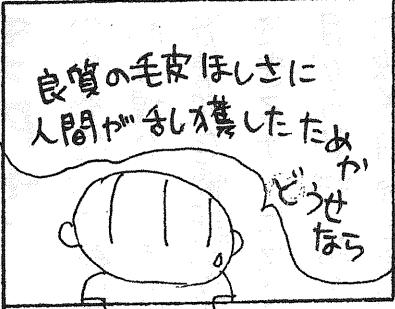 良質の毛皮ほしさに
人間が乱獲したためか
どうせ
なら